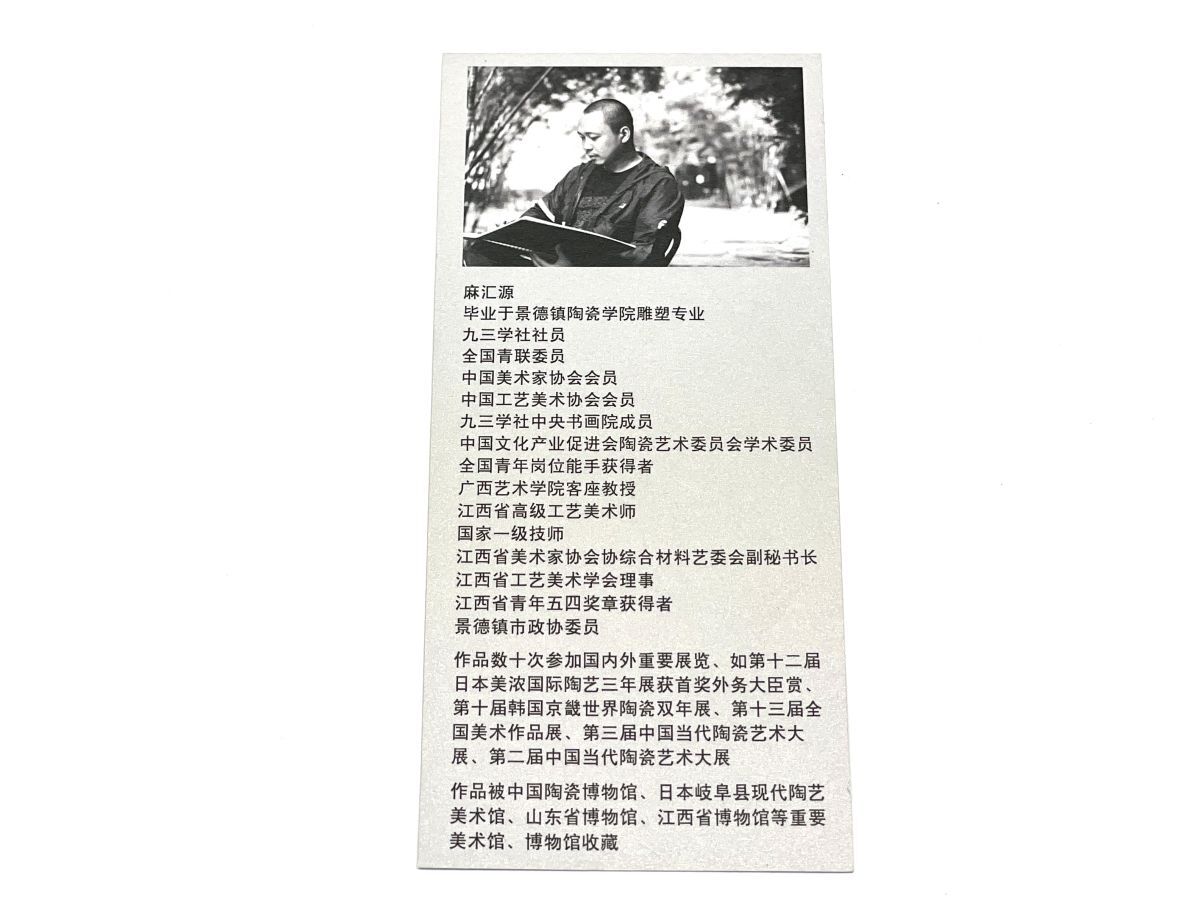 麻汇源
毕业于景德镇陶瓷学院雕塑专业
九三学社社员
全国青联委员
中国美术家协会会员
中国工艺美术协会会员
九三学社中央书画院成员
中国文化产业促进会陶瓷艺术委员会学术委员
全国青年岗位能手获得者
广西艺术学院客座教授
江西省高级工艺美术师
国家一级技师
江西省美术家协会协综合材料艺委会副秘书长
江西省工艺美术学会理事
江西省青年五四奖章获得者
景德镇市政协委员
作品数十次参加国内外重要展览、如第十二届
日本美浓国际陶艺三年展获首奖外务大臣赏、
第十届韩国京畿世界陶瓷双年展、第十三届全
国美术作品展、第三届中国当代陶瓷艺术大
展、第二届中国当代陶瓷艺术大展
作品被中国陶瓷博物馆、日本岐阜县现代陶艺
美术馆、山东省博物馆、江西省博物馆等重要
美术馆、博物馆收藏